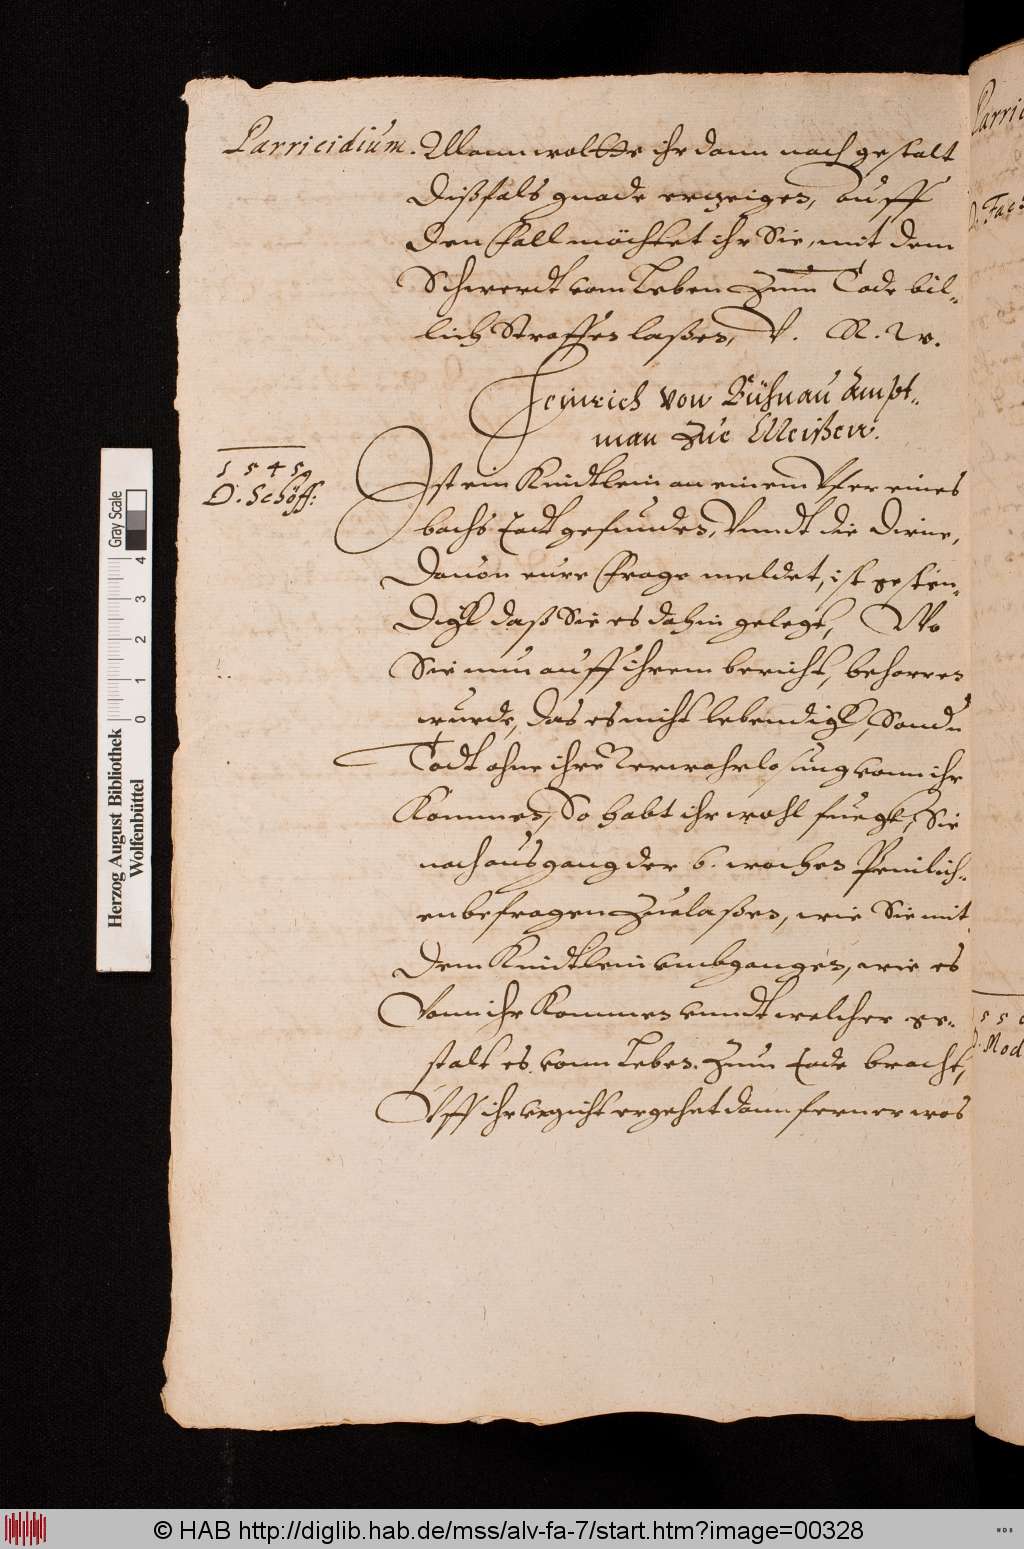 Parricidium. Wann woltte ihr dann nach gestalt
dißfals gnade erzeigen, auff
den Fall möchtet ihr Sie, mit dem
Schwerdt vom Leben Zum Tode bil-
lich Straffen laßen, V. R. W.
Heinrich von Bühnau Ampt-
man Zue Meißenn.
1545
D. Schöff:
Ist ein Kindtlein an einem Vfer eines
bachs todt gefunden, Vnndt die dirne,
Dauon eure Frage meldet, ist gestén-
digk daß Sie es dahin gelegt, Wo
Sie nun auff ihrem bericht, beharren
wurde, das es nicht lebendigk, Sondn
Todt ohne ihre Verwahrlosung vonn ihr
Kommen, So habt ihr wohl fuegk, Sie
nach ausgang der 6. wochen Peinlich-
en befragen Zuelaßen, wie Sie mit
dem Kindtlein vmbgangen, wie es
Vonn ihr Kommen vnndt welcher ge-
stalt es vonn Leben Zum tode bracht,
Vff ihr vrgicht ergehet dann ferner was
Parric
D. Fac:
D. Mod
Gray Scale
0 1 2 3 4
Herzog August Bibliothek
Wolfenbüttel
© HAB http://diglib.hab.de/mss/alv-fa-7/start.htm?image=00328